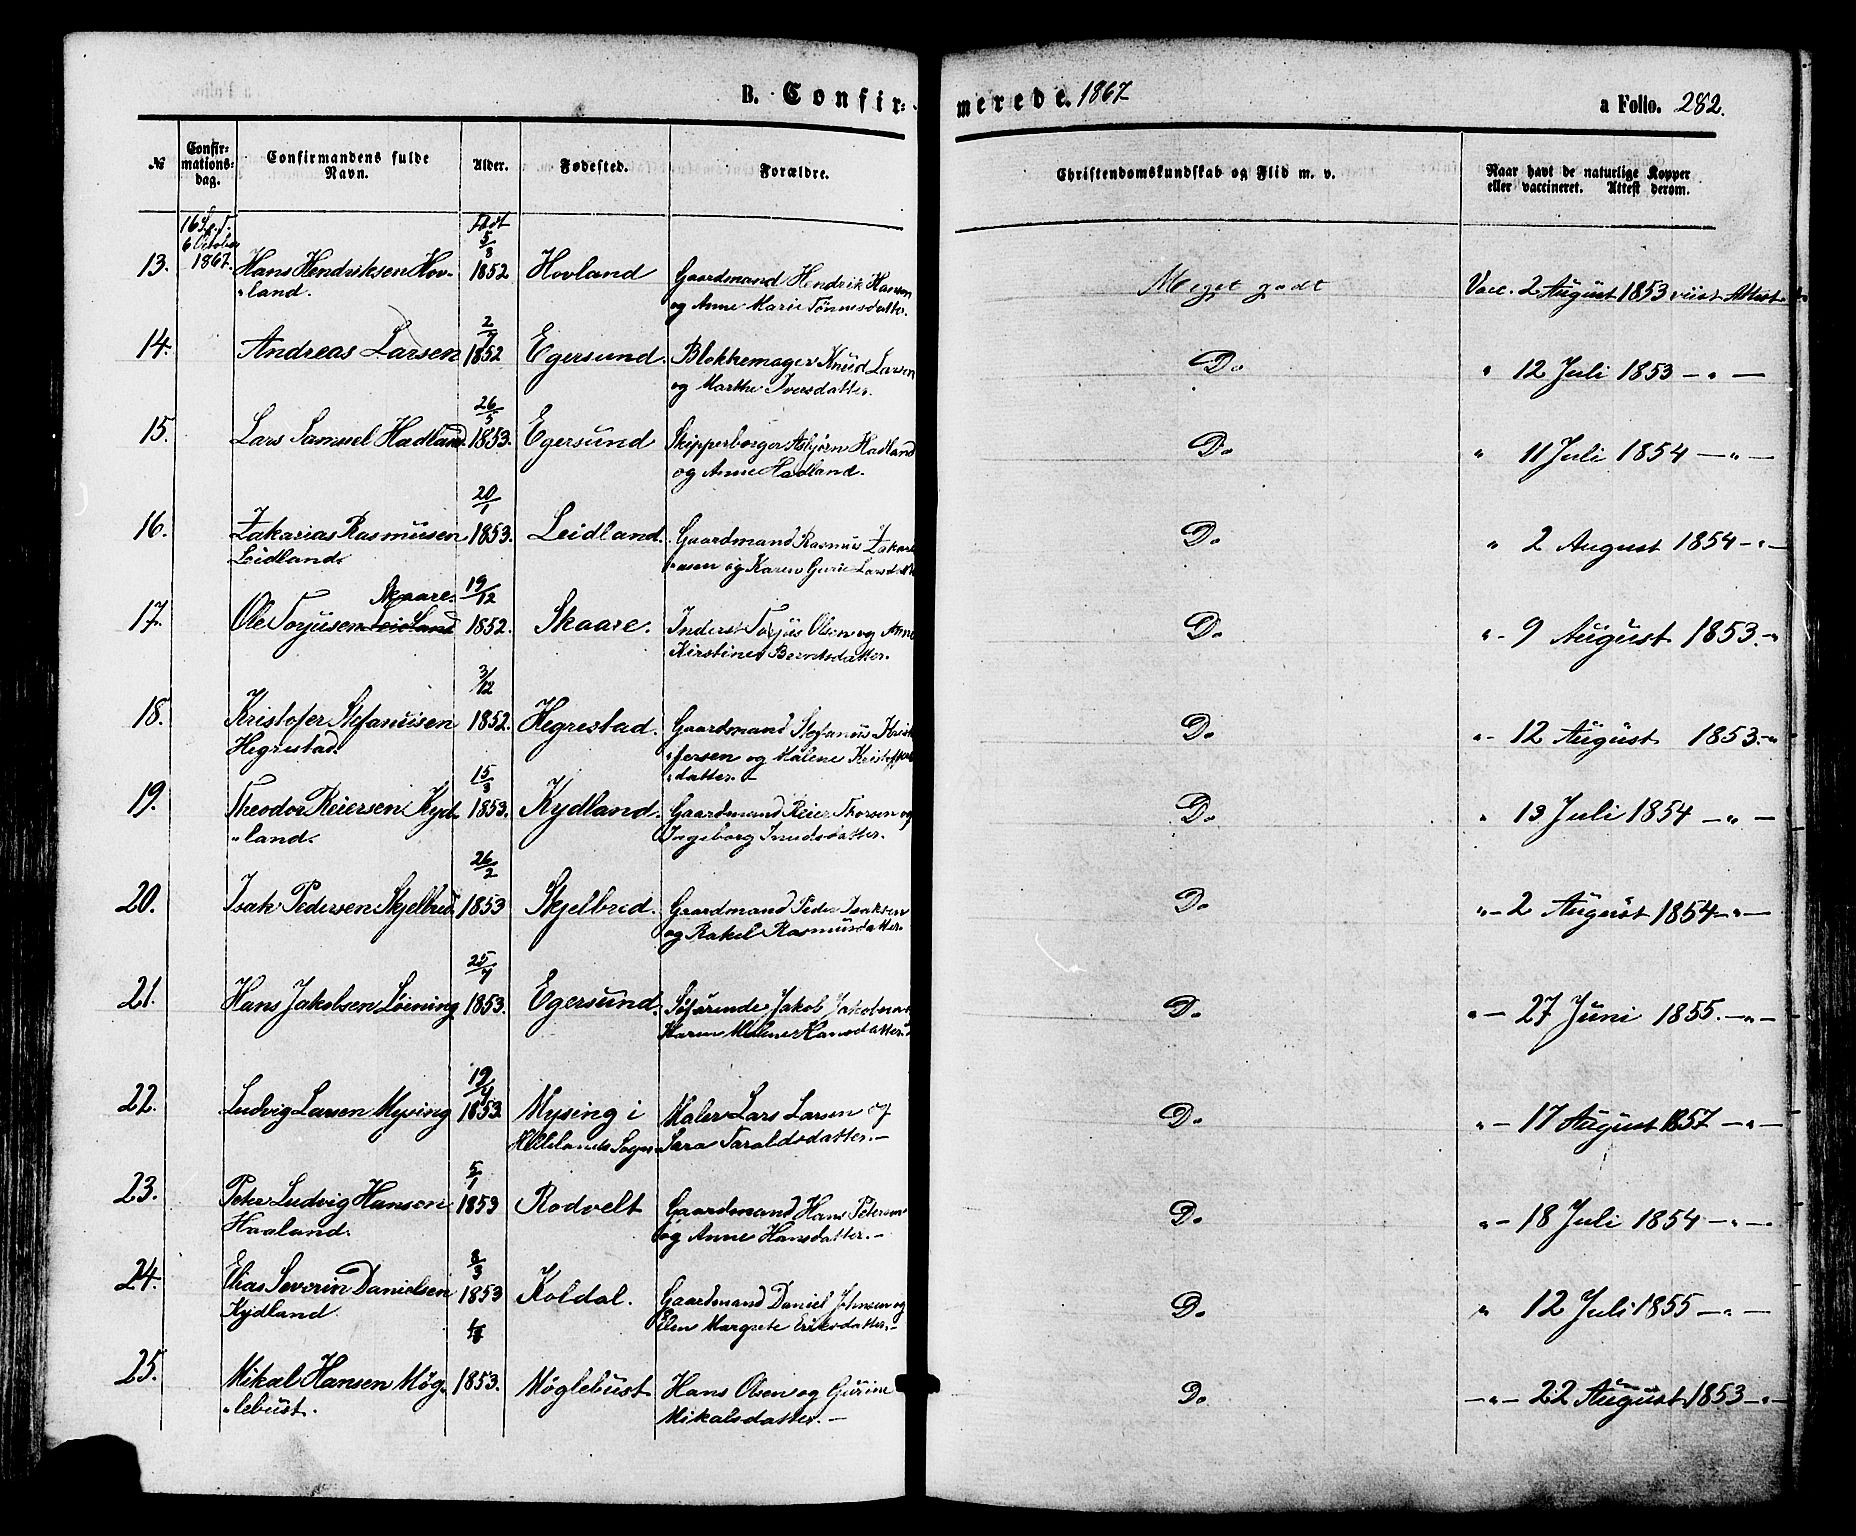 B. Confir- merede. 1867 a Folio. 282.
№ Confir-mations-dag. Confirmandens fulde Navn. Alder. Fødested. Forældre. Christendomskundskab og Flid m. v. Naar havt de naturlige Kopper eller vaccineret. Attest derom.
6 October
1867.
Født
5/8
13. Hans Hendriksen Hov- 1852 Hovland Gaardmand Hendrik Hansen Meget godt Vacc. 2 August 1853 viist Attest
"land. og Anne Marie Tønnesdatter.
14. Andreas Larsen 1852 Egersund. Blokkemager Knud Larsen Do " 12 Juli 1853 — " —
og Marthe Iversdatter.
26/5
15. Lars Samuel Hadland. 1853. Egersund Skipperborger Asbjørn Hadland Do " 11 Juli 1854 — " —
og Anne Hadland.
20/1
16. Zakarias Rasmusen 1853. Leidland. Gaardmand Rasmus Zakari- Do " 2 August 1854 — " —
Leidland. asen og Karen Gurie Larsdatter
Skaare. 19/12
17. Ole Torjusen Leidland 1852. Skaare. Inderst Torjus Olsen og Anne Do " - 9 August 1853. - "
Kirstine Berntsdatter.
3/12
18. Kristofer Stefanusen 1852. Hegrestad. Gaardmand Stefanus Krist- Do " - 12 August 1853. - "
Hegrestad. "fersen og Malene Kristoffers
"datter. —
15/3
19. Theodor Reiersen Kyd- 1853. Kydland. Gaardmand Reier Thorsen og Do " 13 Juli 1854 — " —
"land. Ingeborg Knudsdatter.
26/2
20. Isak Pedersen Skjelbred. 1853 Skjelbred. Gaardmand Peder Isaksen Do " - 2 August 1854 — " —
og Rakel Rasmusdatter.
21. Hans Jakobsen Løining 1853. Egersund. Søfarende Jakob Jakobsen Do " - 27 Juni 1855. — " —
Karen Malene Hansdatter.
22. Ludvig Larsen Mysing 1853. Mysing i Maler Lars Larsen og Do " - 17 August 1857 — " —
Hellelands Sogn. Sara Taraldsdatter. —
5/1
23. Peter Ludvig Hansen 1853 Rodvelt Gaardmand Hans Petersen Do " - 18 Juli 1854 — " —
Haaland. og Anne Hansdatter. —
8/3
24. Elias Severin Danielsen 1853 Koldal. Gaardmand Daniel Johnsen og Do " 12 Juli 1855 — " —
Kydland. Elen Margrete Eriksdatter. —
25. Mikal Hansen Møg- 1853. Møglebust Hans Olsen og Gurine Do — " - 22 August 1853 — " —
"lebust. Mikalsdatter. —